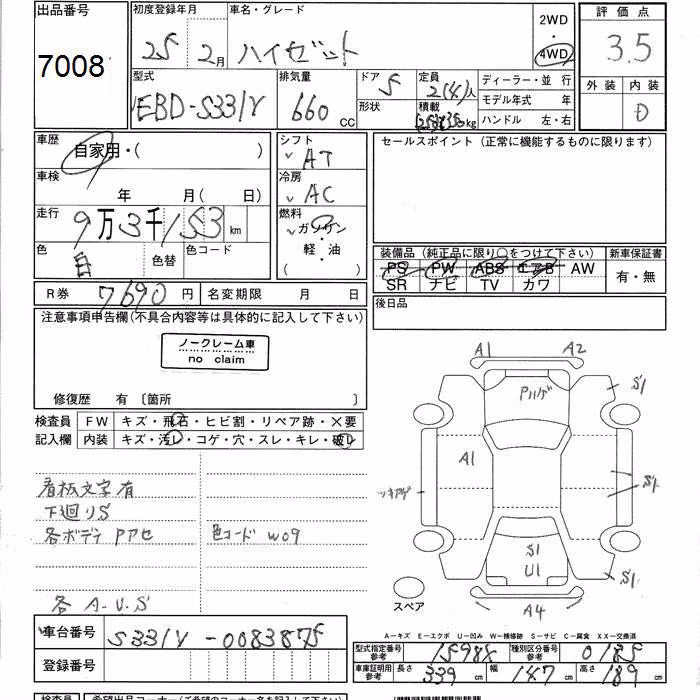 出品番号 初度登録年月 車名・グレード 2WD 評価点
7008 25 2月 ハイゼット 4WD 3.5
型式 排気量 ドア 定員 ディーラー・並 行 外装 内装
EBD-S331V 660 CC 5 2(4)人 D
形状 積載 kg モデル年式 年
ハンドル 左・右
車歴 自家用・( ) シフト AT セールスポイント (正常に機能するものに限ります)
車検 年 月( 日) 冷房 AC
走行 9万3千153km 燃料 ガソリン
軽・油
( )
色 白 色替 色コード
装備品 (純正品に限り○をつけて下さい) 新車保証書
PS PW ABS エアB AW 有・無
SR ナビ TV カワ
R券 7690円 名変期限 月 日 後日品
注意事項申告欄(不具合内容等は具体的に記入して下さい)
ノークレーム車
no claim
修復歴 有 〔箇所 〕
検査員 FW キズ・飛石・ヒビ割・リペア跡・X要
記入欄 内装 キズ・汚レ・コゲ・穴・スレ・キレ・破レ
A1 A2
S1
A1
S1
S1
U1
S1
A4
スペア
看板文字有
下廻りS
各ボデー Pアセ 色コード W09
各 A.U.S
A-キズ E-エクボ U-凹み W-補修跡 S-サビ C-腐食 XX-交換済
車台番号 S331V-0083875
登録番号
型式指定番号 参考 15984 種別区分番号 参考 0185
車庫証明用 参考 長さ 339cm 幅 147cm 高さ 189cm
検査員 希望出品コーナー(ご希望のコーナー名を記入下さい)